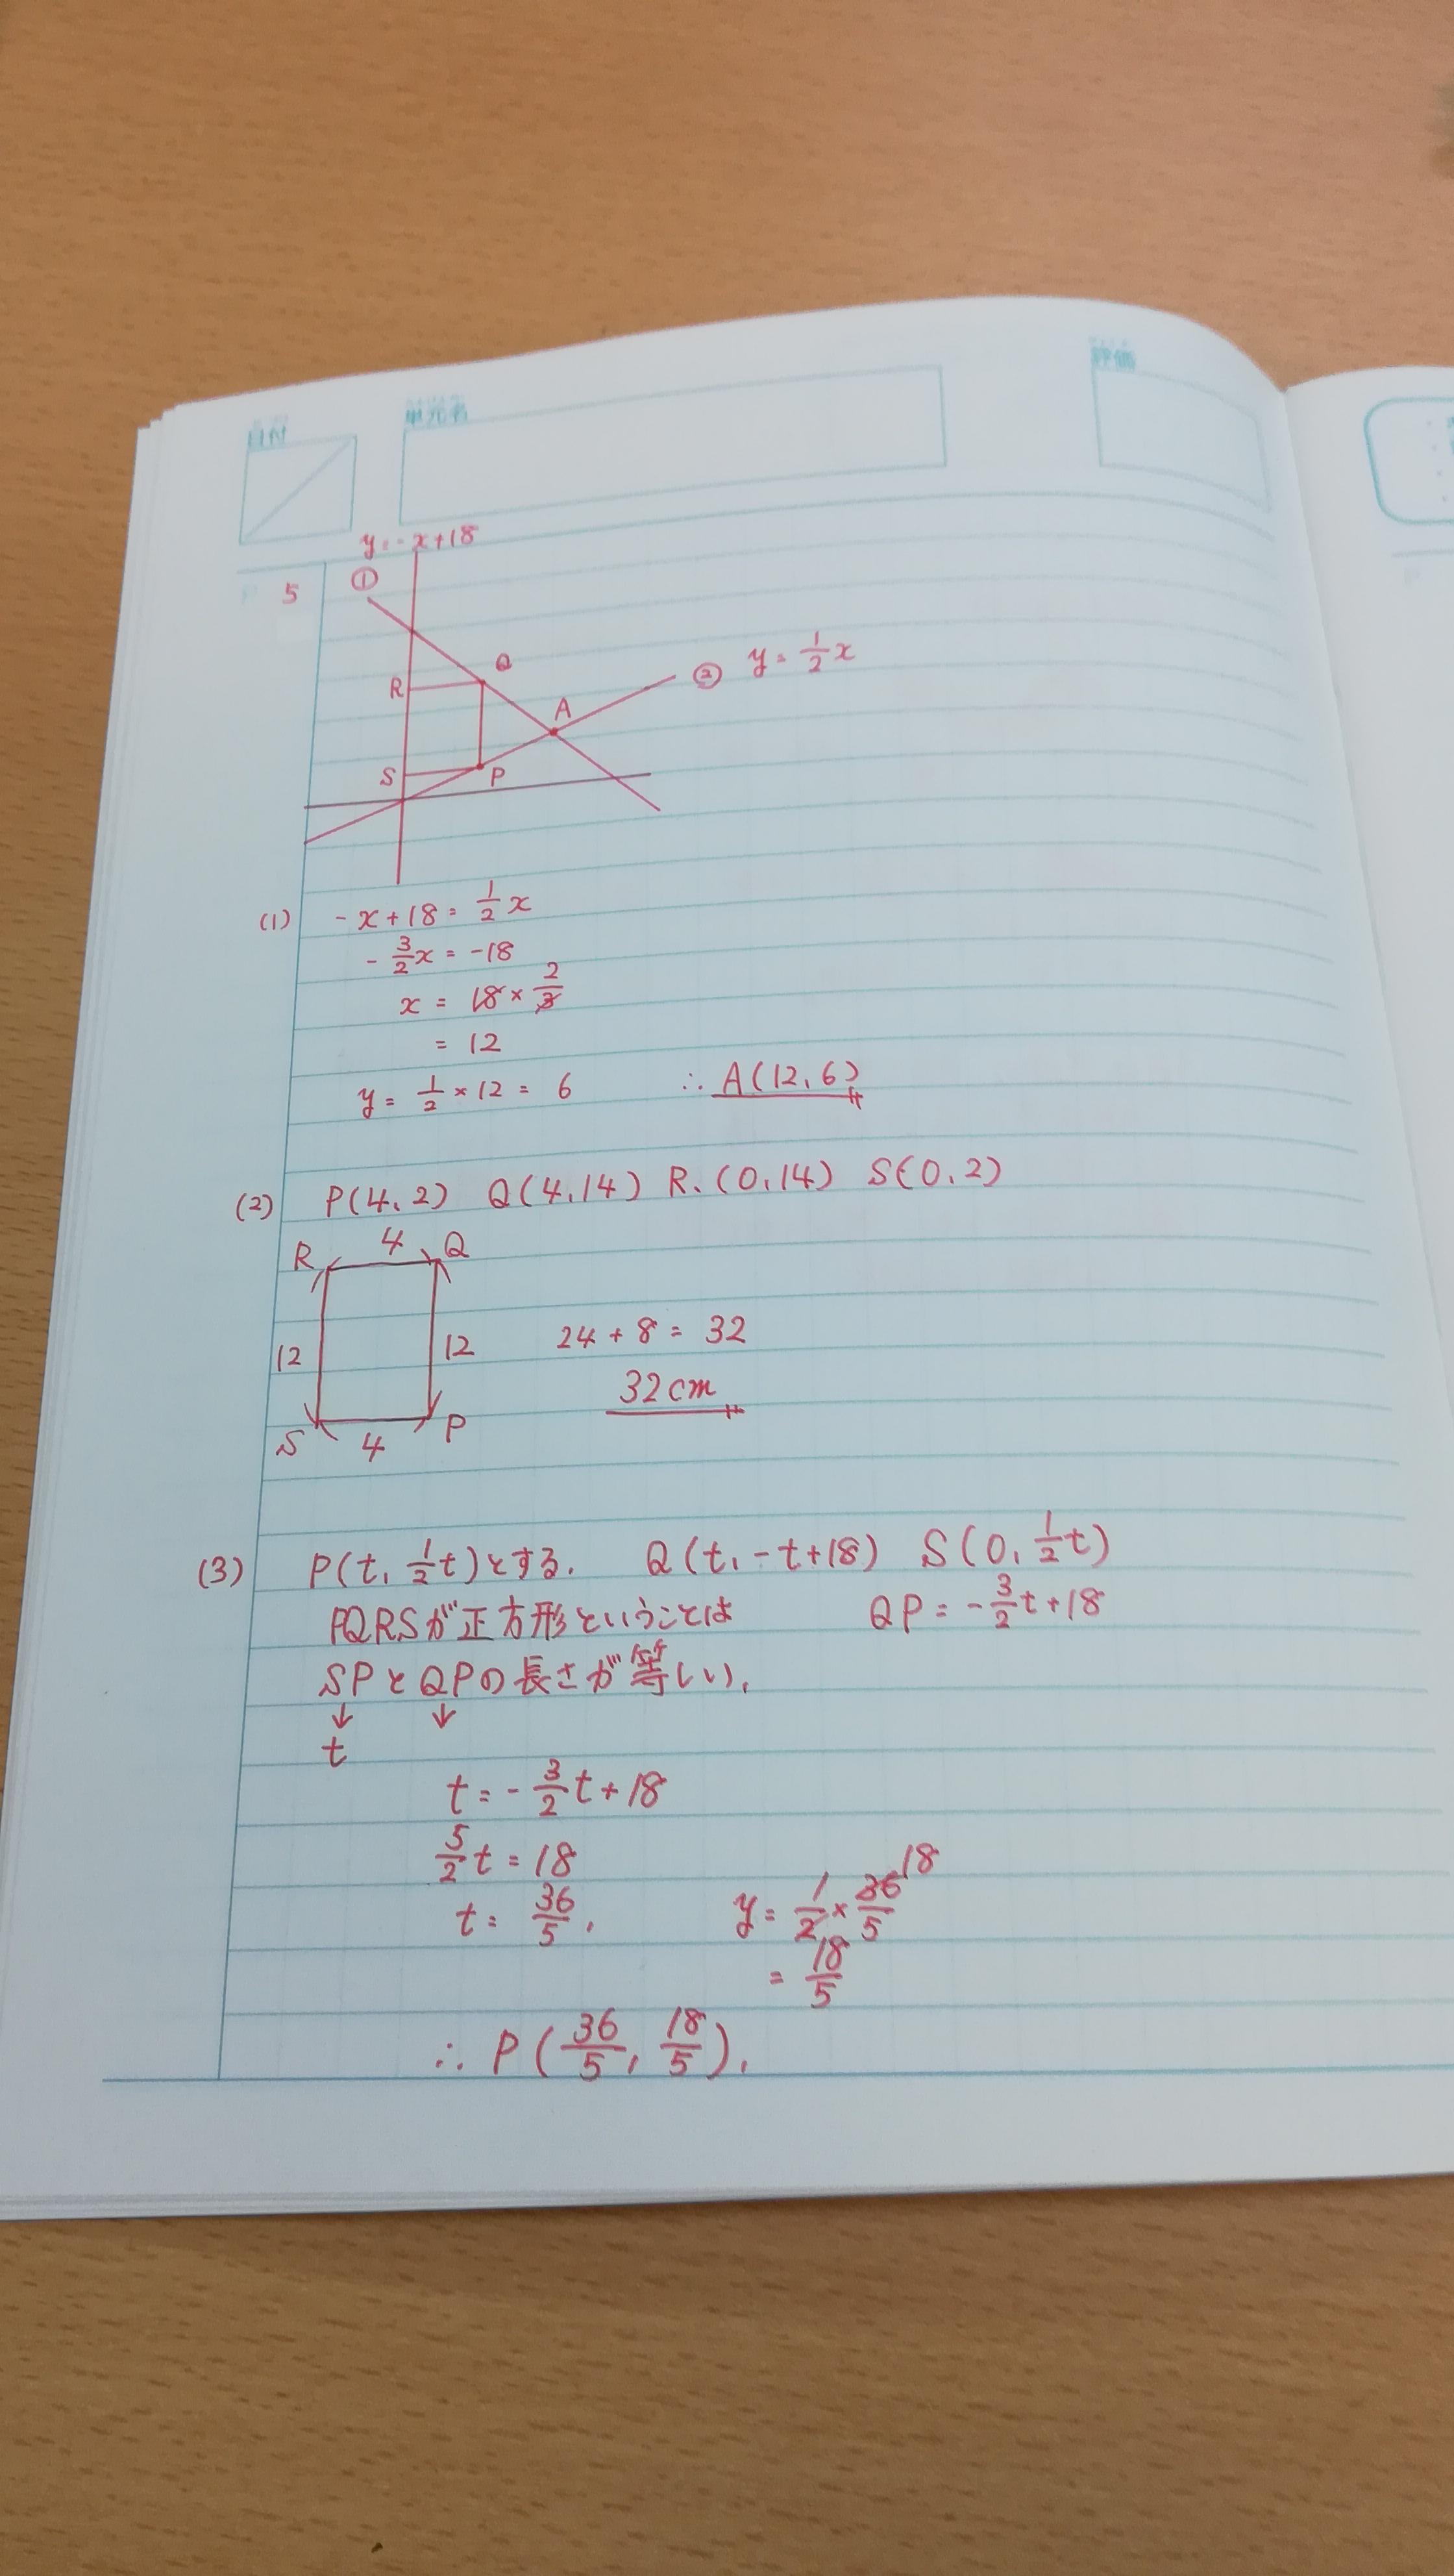 日付
単元名
評価
5
y=-x+18
①
Q
R
② y=1/2x
A
S
P
(1) -x+18=1/2x
-3/2x=-18
x=18×2/3
=12
y=1/2×12=6 ∴A(12,6)
(2) P(4,2) Q(4,14) R(0,14) S(0,2)
R 4 Q
12 12 24+8=32
32cm
S 4 P
(3) P(t,1/2t)とする. Q(t,-t+18) S(0,1/2t)
PQRSが正方形ということは QP=-3/2t+18
SPとQPの長さが等しい.
↓ ↓
t
t=-3/2t+18
5/2t=18
t=36/5. y=1/2×36/5 18
=18/5
∴P(36/5,18/5).